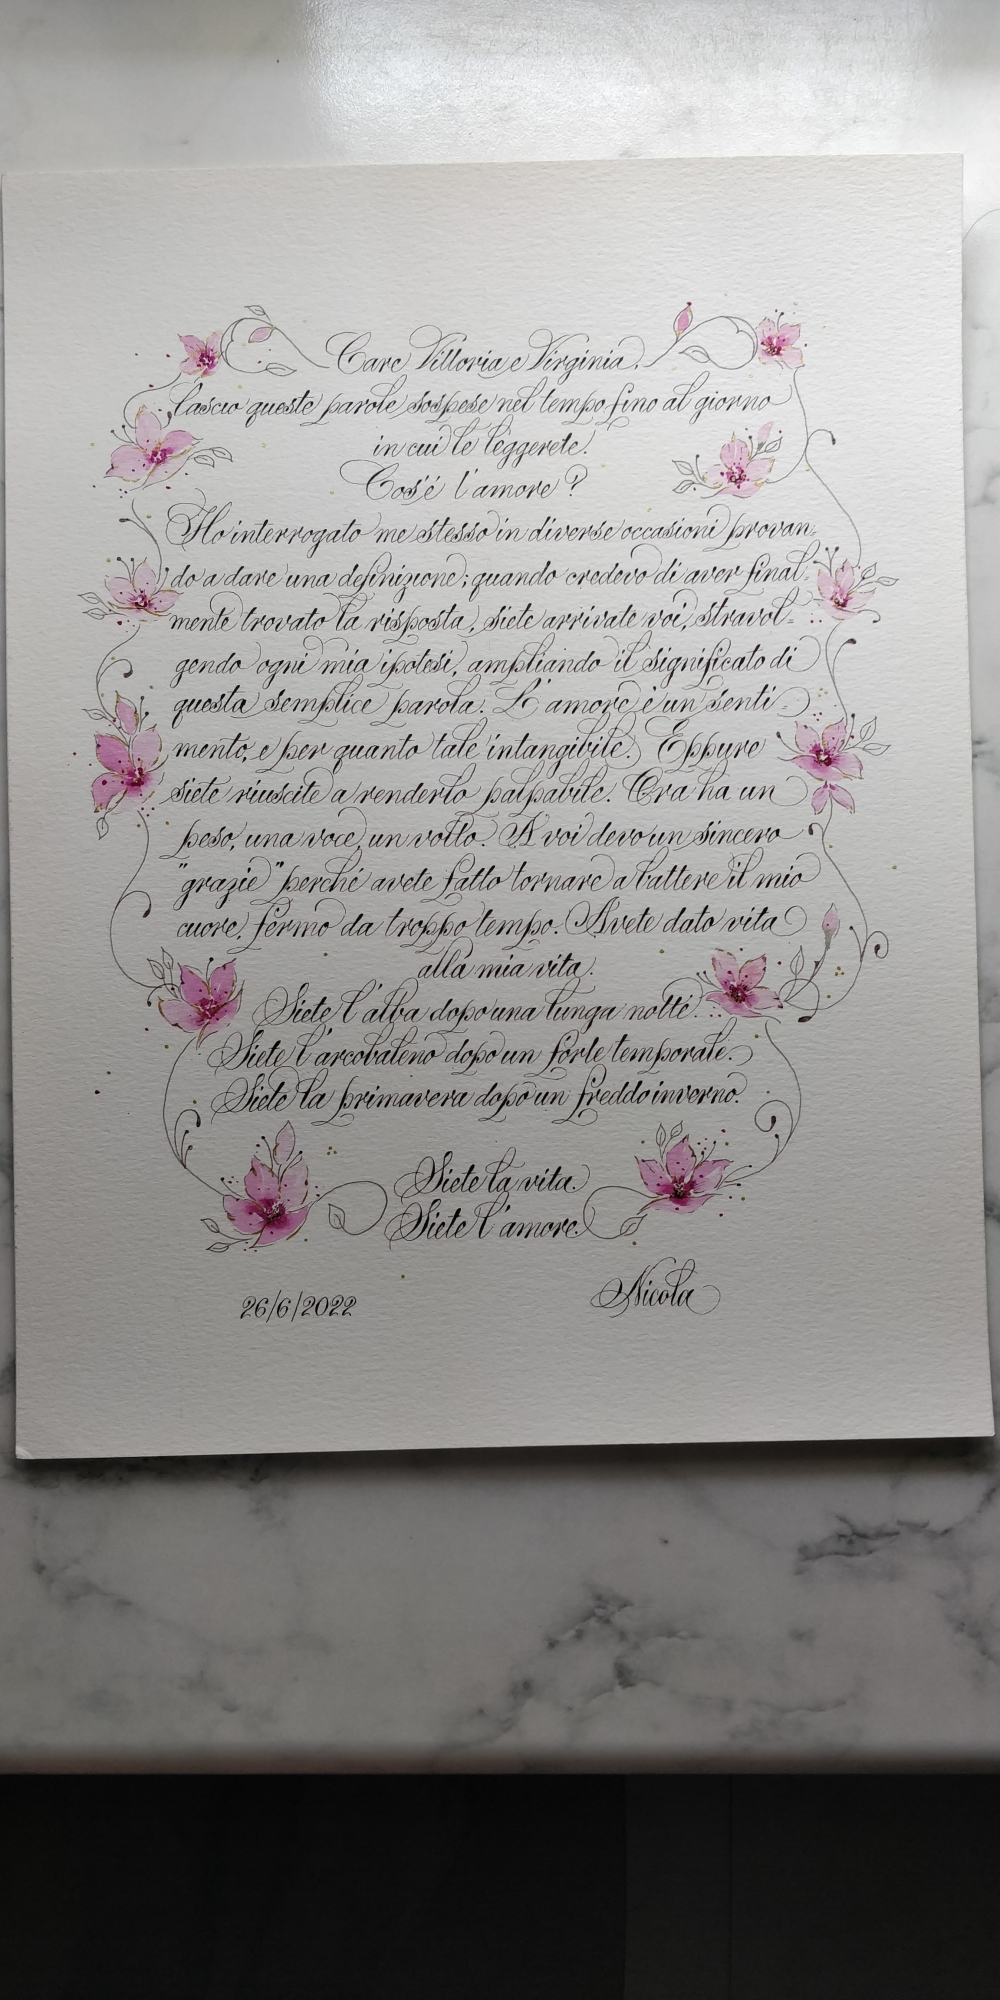 Care Vittoria e Virginia,
lascio queste parole sospese nel tempo, fino al giorno
in cui le leggerete.
Cos'è l'amore?
Ho interrogato me stesso in diverse occasioni provan-
do a dare una definizione; quando credevo di aver final-
mente trovato la risposta, siete arrivate voi, stravol-
gendo ogni mia ipotesi, ampliando il significato di
questa semplice parola. L'amore è un senti-
mento, e per quanto tale intangibile. Eppure
siete riuscite a renderlo palpabile. Ora ha un
peso, una voce, un volto. A voi devo un sincero
"grazie" perché avete fatto tornare a battere il mio
cuore, fermo da troppo tempo. Avete dato vita
alla mia vita.
Siete l'alba dopo una lunga notte.
Siete l'arcobaleno dopo un forte temporale.
Siete la primavera dopo un freddo inverno.
Siete la vita.
Siete l'amore.
26/6/2022 Nicola